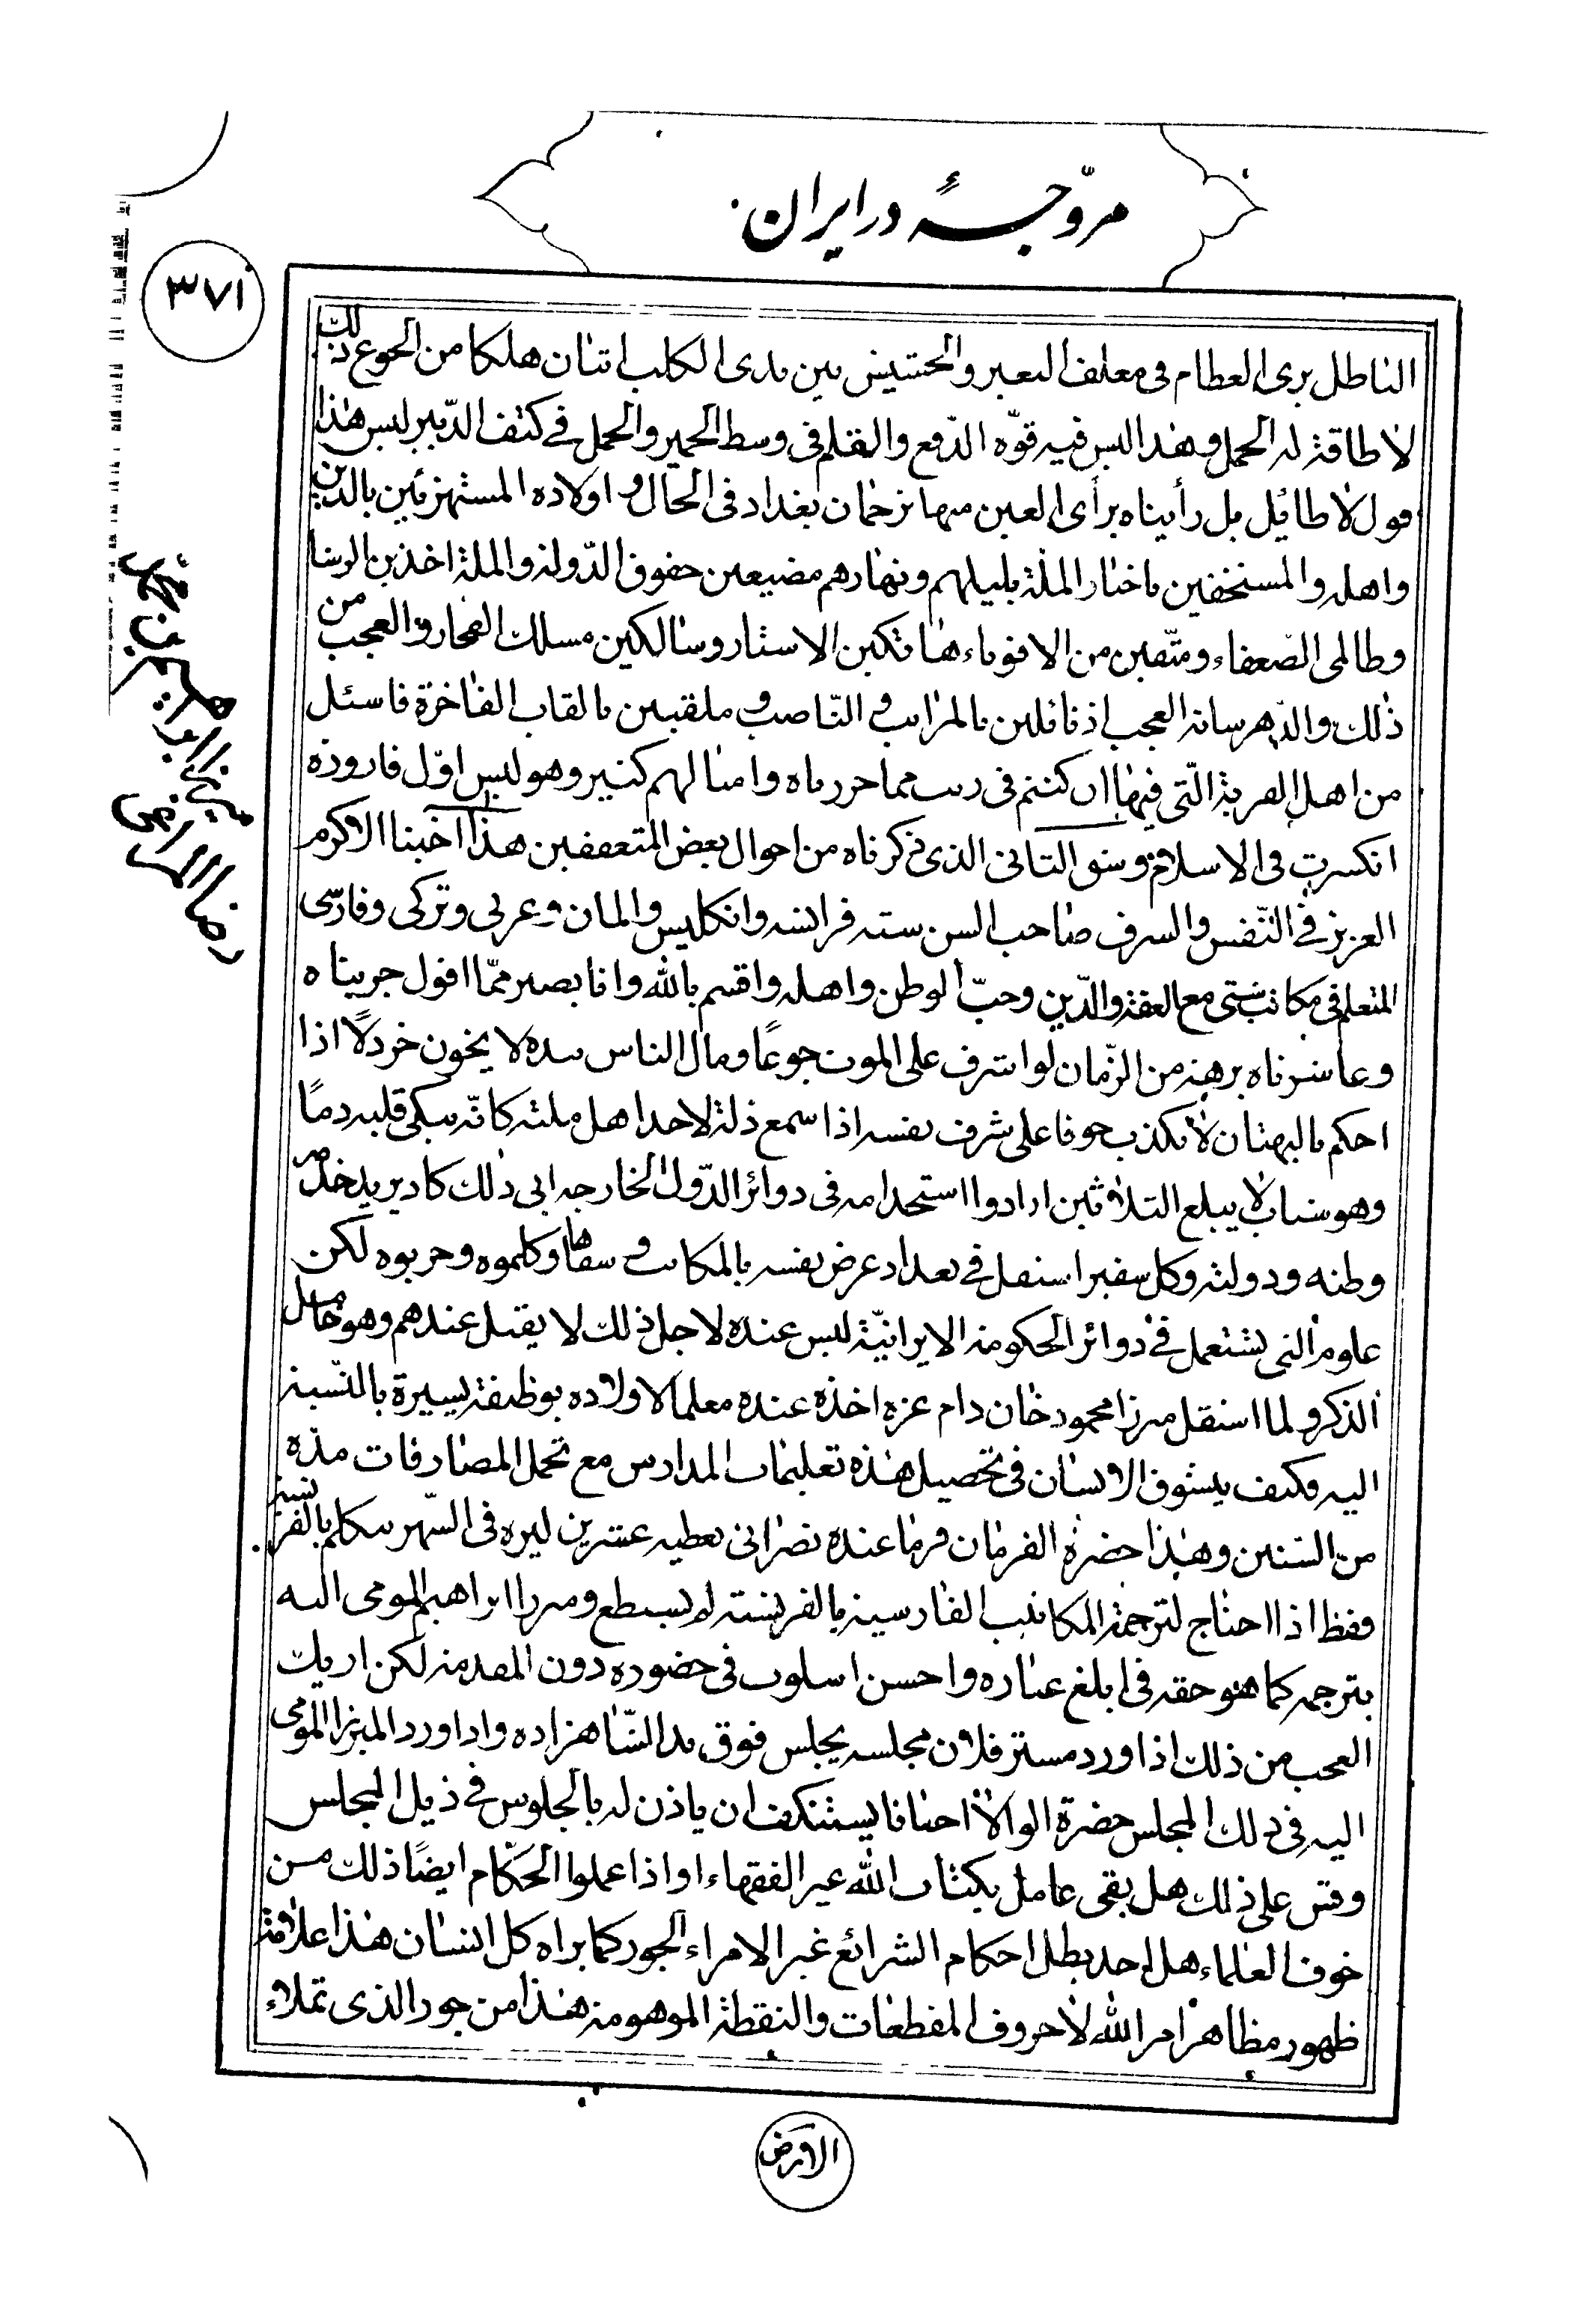 مروّجهٔ در ایران
۳۷۱
الباطل یری العظام فی معلف البعیر والحشیش بین یدی الکلب اثنان هلکا من الجوع ذلک
لا طاقة له الحمل وهذا لیس فیه قوّه الدّفع والقلم فی وسط الحمیر والحمل فی کتف الدّبیر لیس هذا
قول لا طائیل بل رأیناه برأی العین منها ترخمان بغداد فی الحال و اولاده المستهزئین بالدین
واهله والمستخفین باخبار الملّة بلیلهم ونهارهم مضیعین حقوق الدّولة والملة اخذین الرشا
وظالمی الضعفاء ومتّقین من الاقویاء هاتکین الاستار وسالکین مسلک الفجار والعجب من
ذلک والدّهر سانه العجب اذ نائلین بالمراتب و النّاصب و ملقبین بالقاب الفاخرة فاسئل
من اهل القریة الّتی فیها ان کنتم فی ریب مما حررناه وامثالهم کثیر وهو لیس اوّل قاروزه
انکسرت فی الاسلام وشق الثانی الذی ذکرناه من احوال بعض المتعففین هذا اخبنا الاکرم
العزیز فی النّفس والشرف صاحب السن سته فرانسه وانکلیس والمان و عربی وترکی وفارسی
المتعلم فی مکاتب شتی مع العفة والدّین وحبّ الوطن واهله واقسم بالله وانا بصیر ممّا اقول جربناه
وعاشرناه برهة من الزّمان لو اشرف علی الموت جوعًا ومال الناس بیده لا یخون خردلًا اذا
احکم بالبهتان لا یکذب خوفا علی شرف نفسه اذا سمع ذلة لاحد اهل ملته کانّه یبکی قلبه دمًا
وهو شاب لا یبلغ الثلاثین ارادوا استخدامه فی دوائر الدّول الخارجه ابی ذلک کاد یرید خدمة
وطنه ودولته وکل سفیر استقل فی بغداد عرض نفسه بالمکاتب و سفاها وکلموه وجربوه لکن
علوم التی تشتعمل فی دوائر الحکومة الایرانیّة لیس عنده لاجل ذلک لا یقبل عندهم وهو خامل
الذکر ولما استقل مرزا محمود خان دام عزه اخذه عنده معلما لاولاده بوظیفة یسیرة بالنّسبة
الیه فکیف یشوق الانسان فی تحصیل هذه تعلیمات المدارس مع تحمل المصارفات مدّه
من السّنین وهذا حضرة الفرمان فرما عنده نصرانی یعطیه عشرین لیره فی الشّهر یتکلم بالفرنسیّه
فقط اذا احتاج لترجمة المکاتیب الفارسیة بالفرنسته لم یسطع ومرزا ابراهیم المومی الیه
یترجمه کما هو حقه فی ابلغ عباره واحسن اسلوب فی حضوره دون المقدمة لکن اریک
العجب من ذلک اذا ورد مستر فلان مجلسه یجلس فوق ید الشّاهزاده واذا ورد المیرزا المومی
الیه فی ذلک المجلس حضرة الوالا احیانا یستنکف ان یاذن له بالجلوس فی ذیل المجلس
وقس علی ذلک هل بقی عامل بکتاب الله غیر الفقهاء او اذا عملوا الحکّام ایضًا ذلک من
خوف العلماء هل احد یبطل احکام الشرائع غیر الامراء الجور کما یراه کل انسان هذا علامة
ظهور مظاهر امر الله لا حروف المقطعات والنقطة الموهومة هذا من جور الذی تملاء
الارض